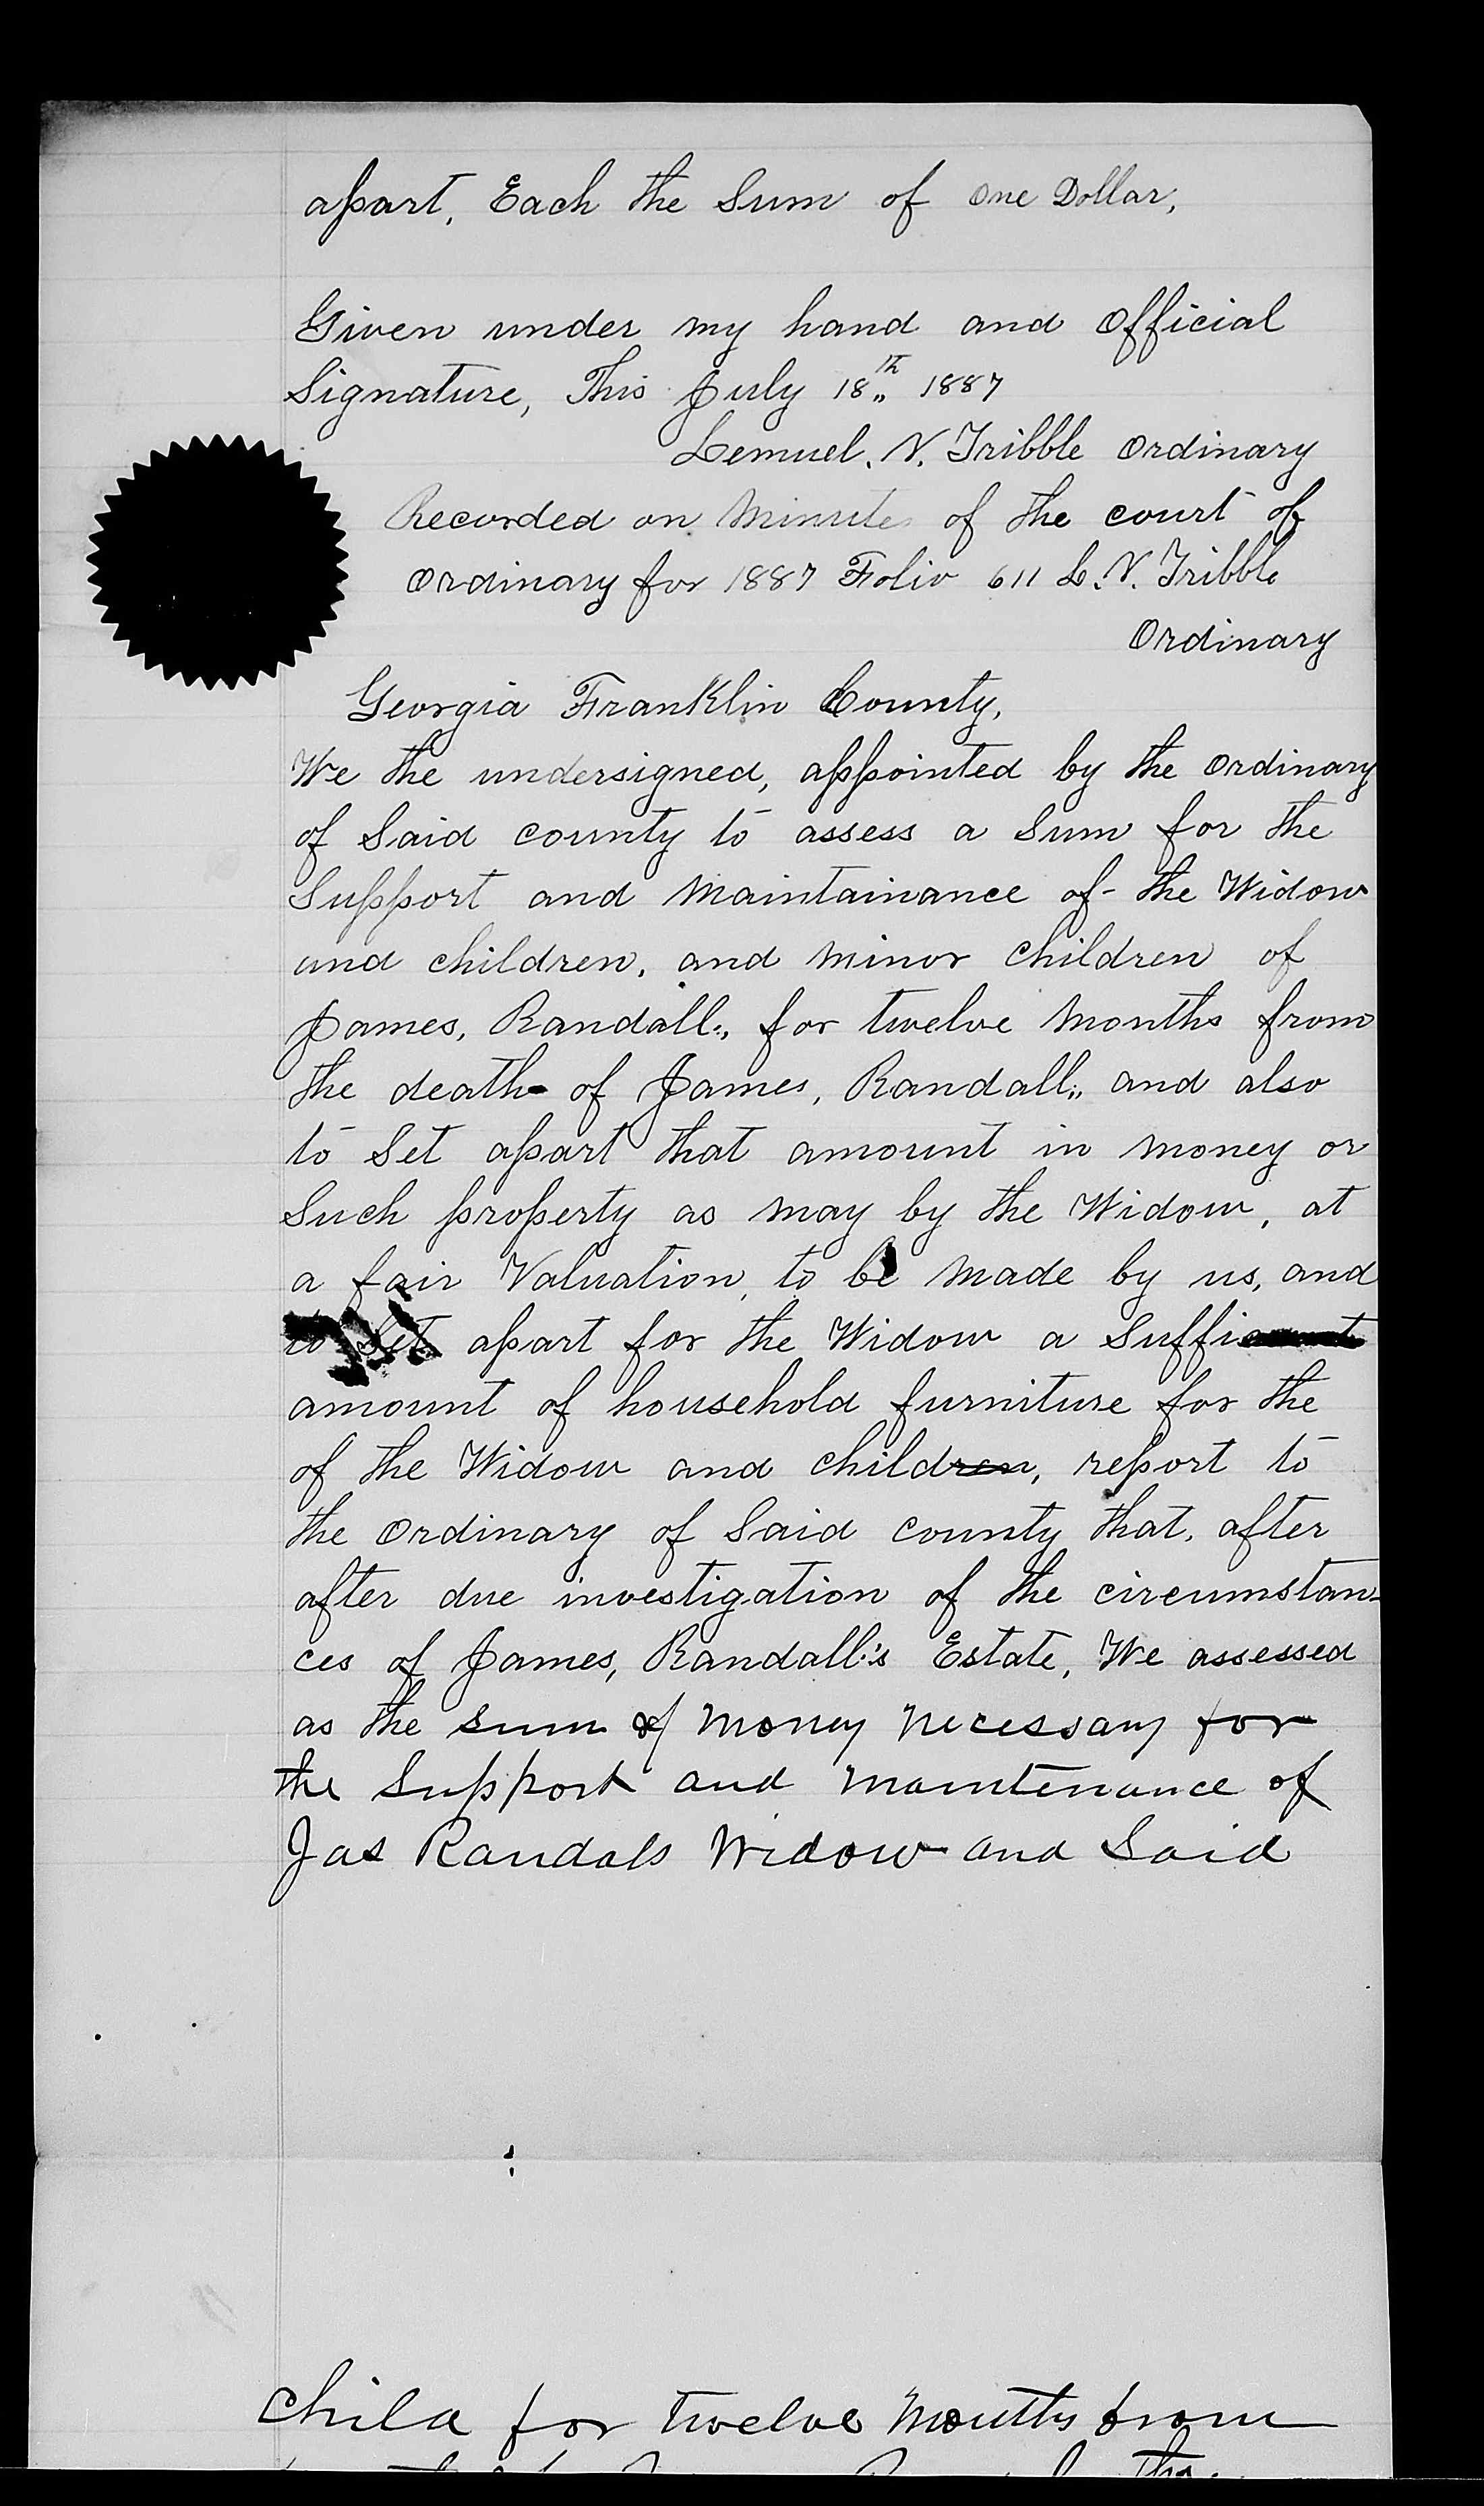 apart, Each the Sum of One Dollar,
Given under my hand and Official
Signature, This July 18th 1887
Lemuel. N. Tribble Ordinary
Recorded on Minutes of the court of
Ordinary for 1887 Folio 611 L. N. Tribble
Ordinary
Georgia Franklin County,
We the undersigned, appointed by the Ordinary
of Said county to assess a Sum for the
Support and Maintainance of the Widow
and children, and Minor children of
James, Randall., for twelve Months from
the death of James, Randall., and also
to Set apart that amount in Money or
Such property as may by the Widow, at
a fair Valuation, to be Made by us, and
to Set apart for the Widow a Sufficient
amount of household furniture for the
of the Widow and children, report to
the Ordinary of Said county that, after
after due investigation of the circumstan-
ces of James, Randall.'s Estate, We assessed
as the sum of money necessary for
the Support and maintenance of
Jas Randals Widow and Said
Child for twelve Months from